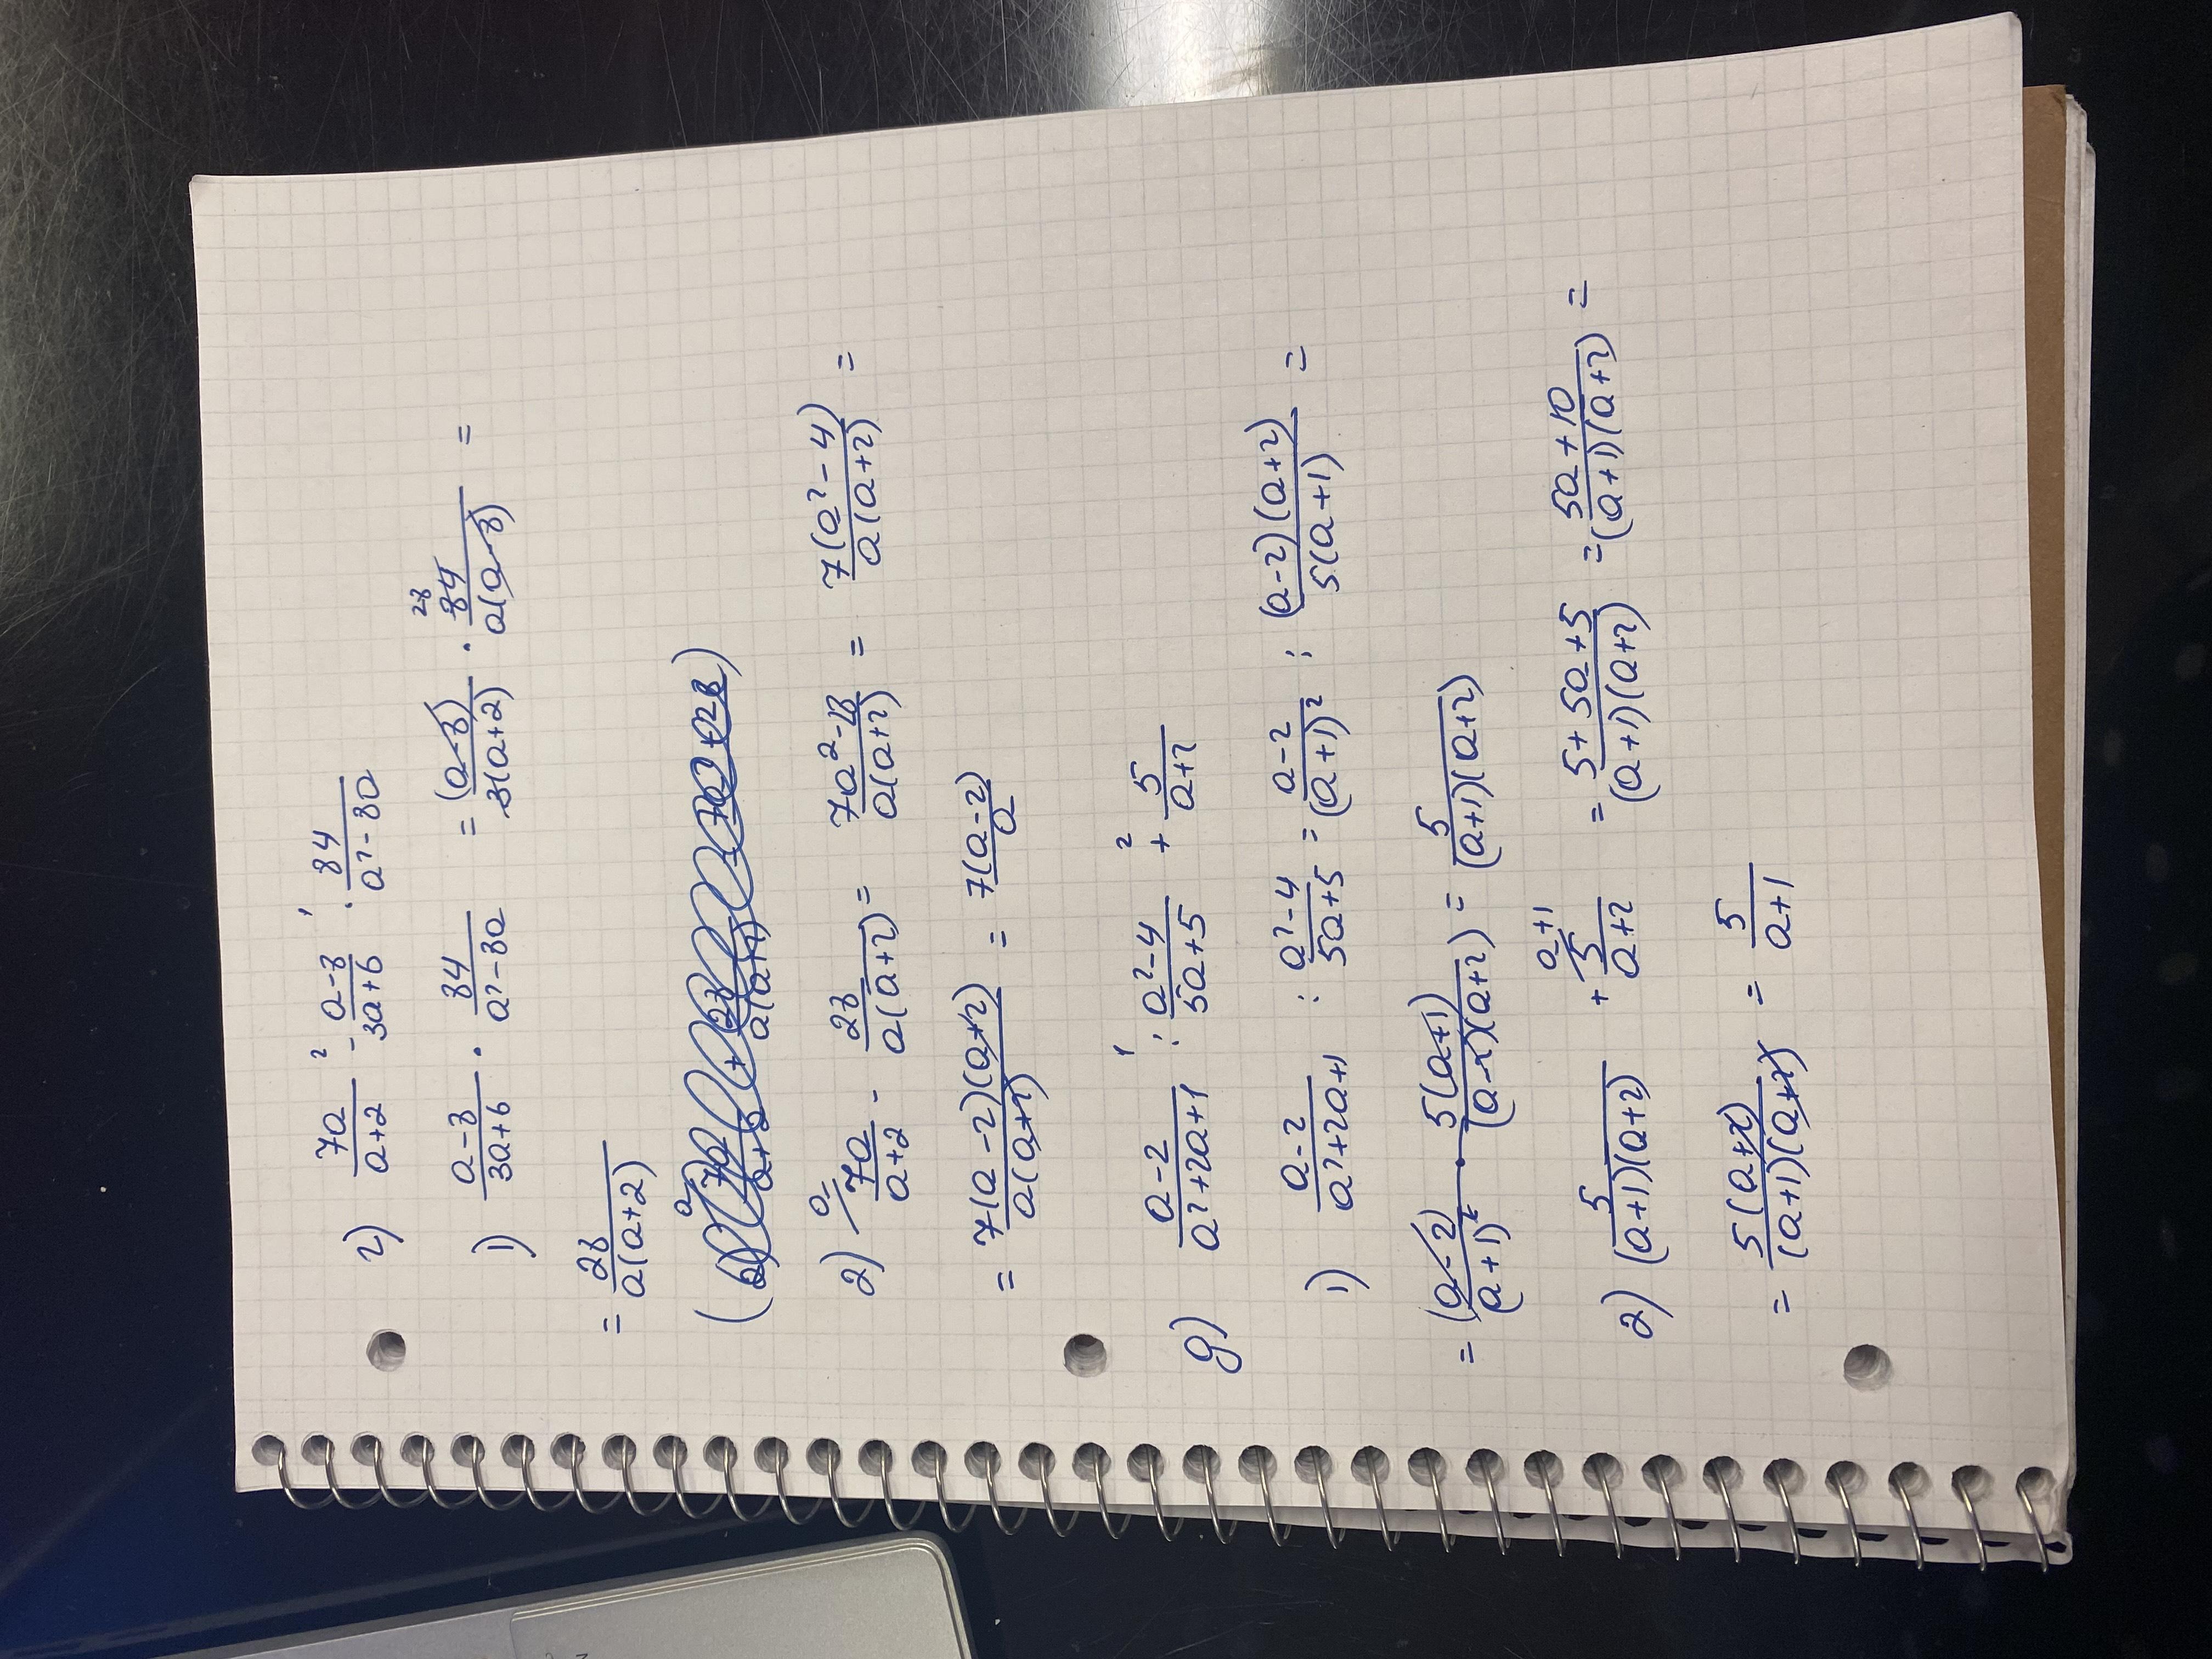 г) 7a/(a+2) -² (a-8)/(3a+6) ·¹ 84/(a²-8a)
1) (a-8)/(3a+6) · 84/(a²-8a) = (a-8)/(3(a+2)) · 84/(a(a-8)) = 28
= 28/(a(a+2))
2) 7a/(a+2) - 28/(a(a+2)) = (7a²-28)/(a(a+2)) = 7(a²-4)/(a(a+2)) =
= 7(a-2)(a+2)/(a(a+2)) = 7(a-2)/a
д) (a-2)/(a²+2a+1) :¹ (a²-4)/(5a+5) +² 5/(a+2)
1) (a-2)/(a²+2a+1) : (a²-4)/(5a+5) = (a-2)/(a+1)² : (a-2)(a+2)/(5(a+1)) =
= (a-2)/(a+1)² · 5(a+1)/((a-2)(a+2)) = 5/((a+1)(a+2))
2) 5/((a+1)(a+2)) + 5/(a+2) a+1 = (5+5a+5)/((a+1)(a+2)) = (5a+10)/((a+1)(a+2)) =
= 5(a+2)/((a+1)(a+2)) = 5/(a+1)